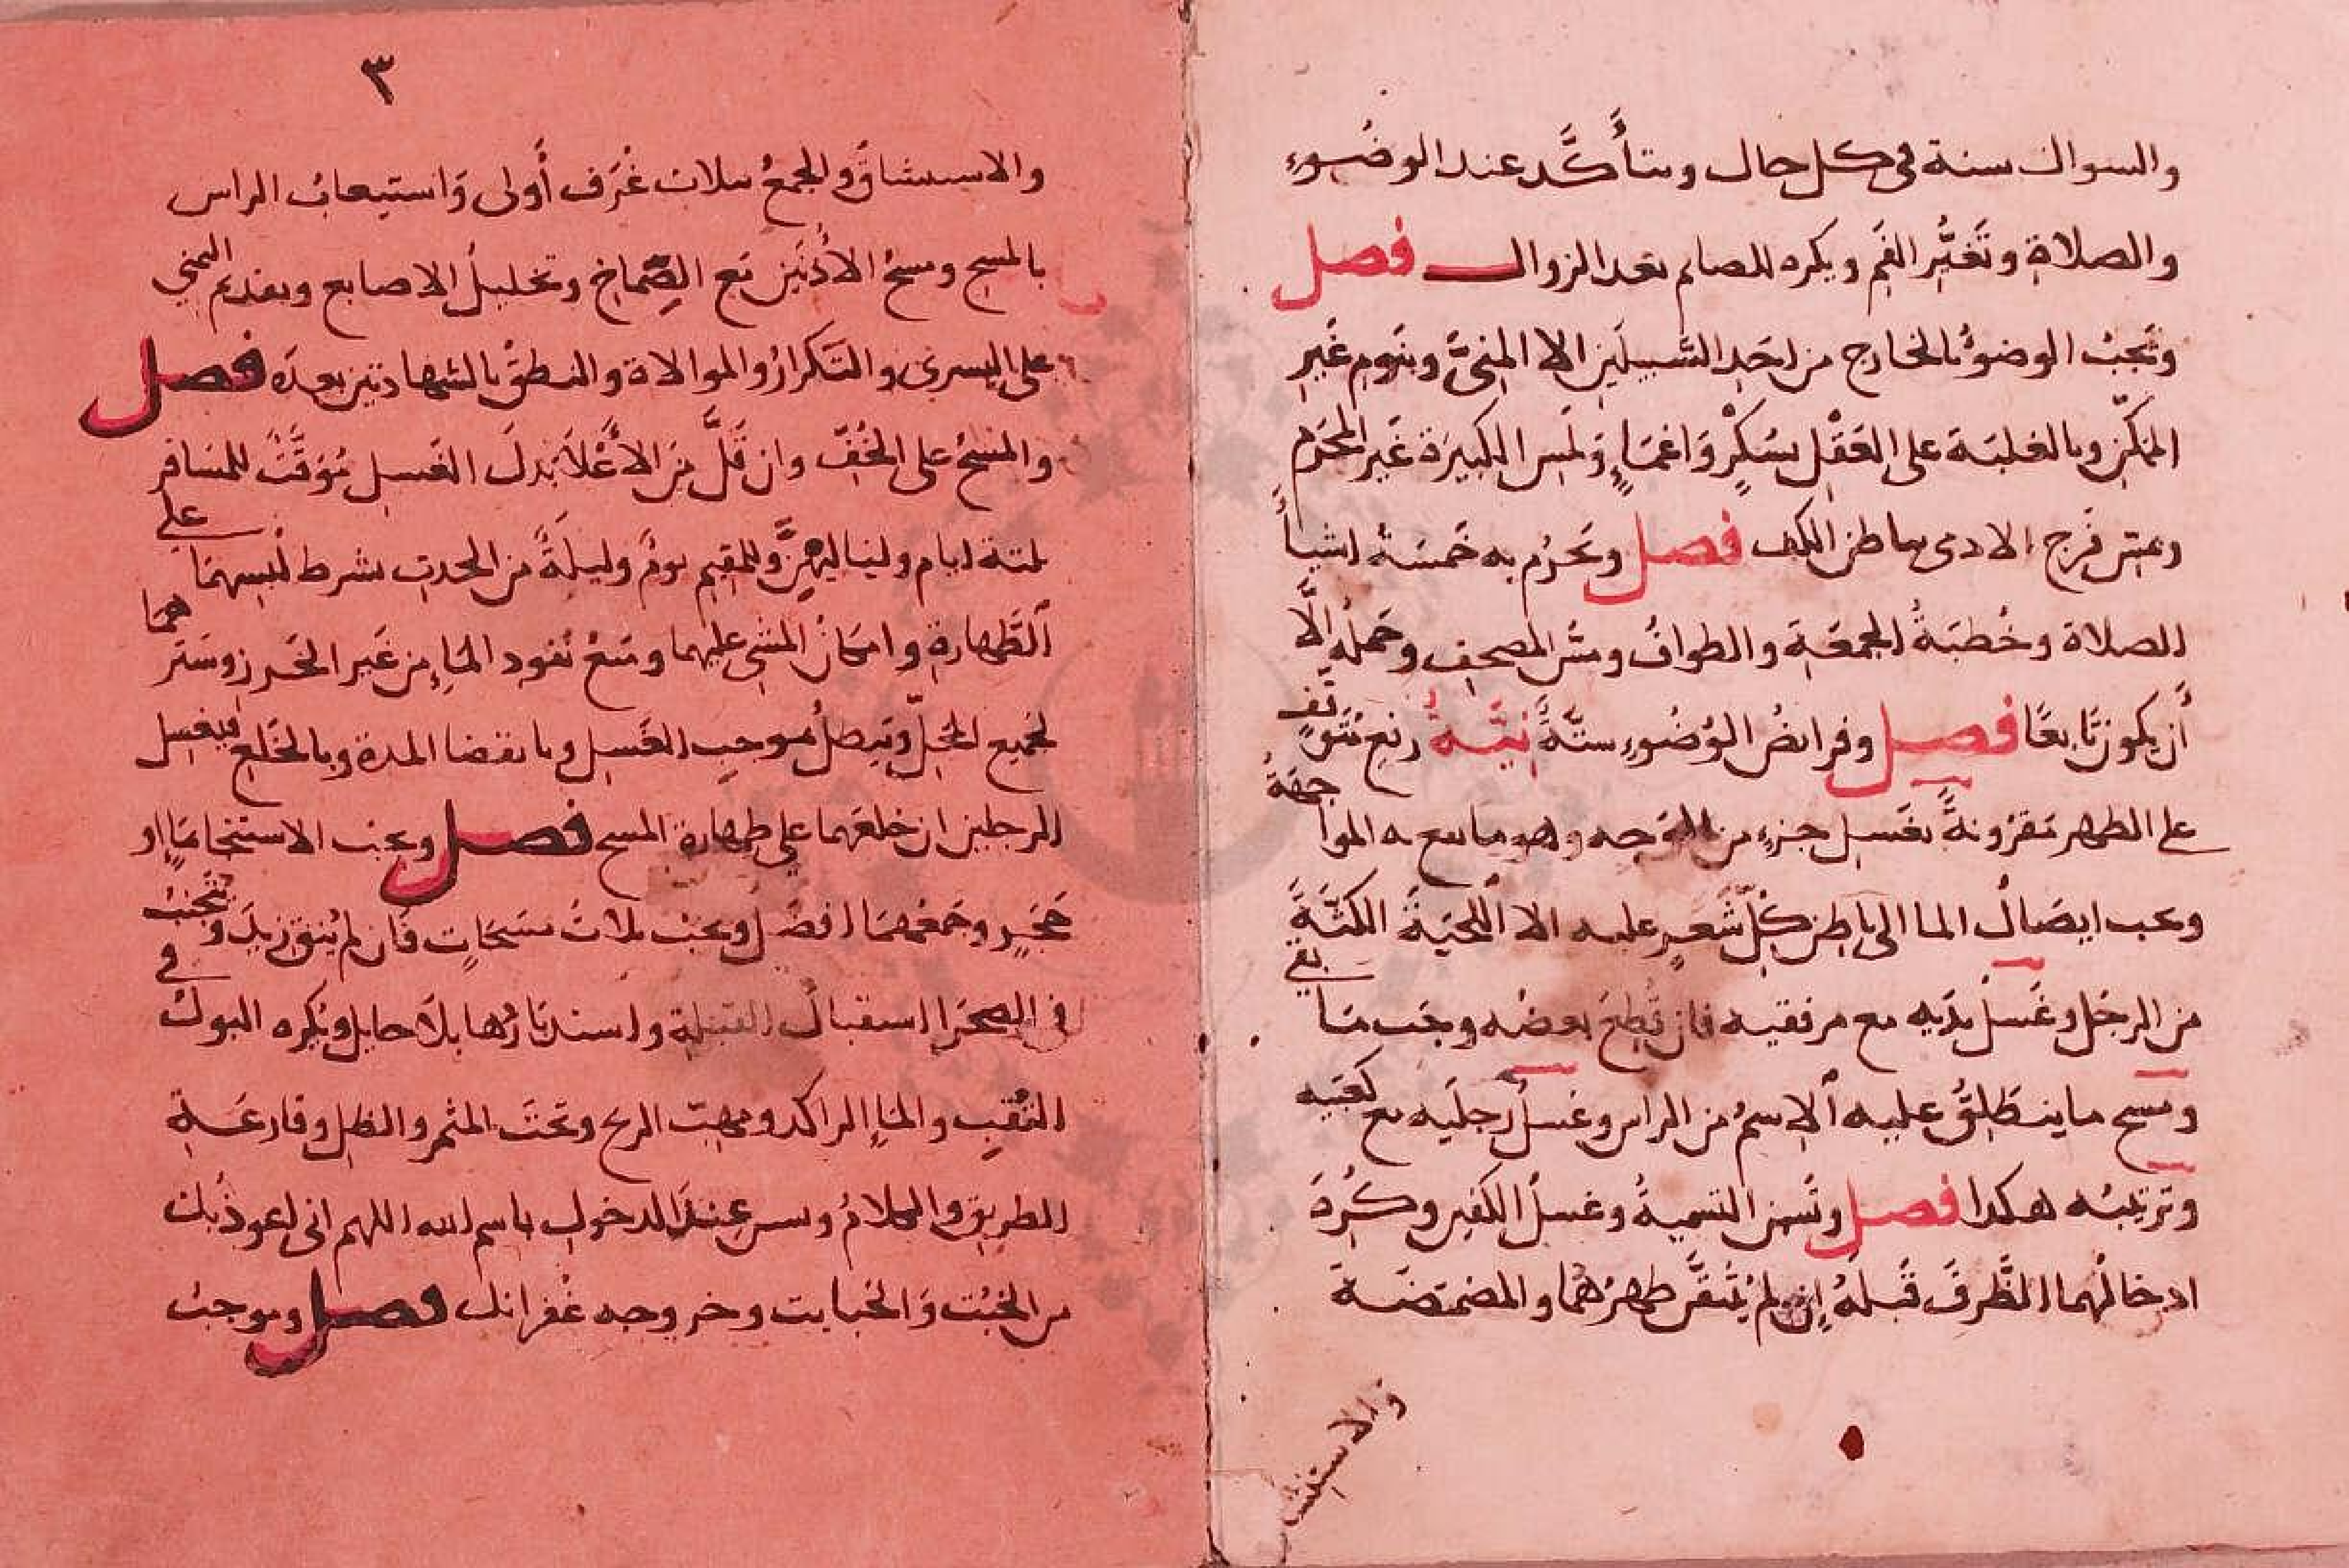 والسواك سنة في كل حال ويتأكَّد عند الوضُوءِ
والصلاةِ وتَغَيُّرِ الفَمِ ويكره للصايم بَعد الزوال فصل
وتَجبُ الوضوُ بالخارج من احَدِ السَّبيلَين الا المنيَّ وبنَومِ غَيرِ
المُمَكِّن وبالغلبَة على العَقْل بسُكرٍ وَاغمَاءٍ وَلمَسِ الكبيرَة غَيرِ المحرَم
ومسِّ فَرج الادمى بباطن الكف فصل وتَحرُم به خَمسَةُ اشيَأَ
الصلاة وخُطبَةُ الجمعَةِ والطوافُ ومسُّ المصحف وحَملُه إلَّا
أن يكون تَابعًا فصل وفرايضُ الوُضُوءِ ستَّةً نيَّةُ رفع مُتَوقِّفٍ
على الطهر مَقرُونَةً بغَسل جزءٍ من الوَجه وهو ما تقع به المواجهَةُ
وتجب ايصَالُ الما الى باطن كُلِّ شَعرٍ عليه الا اللحيَةَ الكثَّةَ
من الرجُل وغَسلُ يدَيه مع مرفقيه فان قُطِعَ بعضُه وجَبَ مَا بقي
ومَسح ما ينطَلِقُ عليه ٱلاِسمُ من الراس وغَسلُ رجلَيه مع كَعبَيه
وترتيبُه هكذا فصل وتُسَن التسميةُ وغسلُ الكفين وكُرهَ
ادخالُهما الظَّرفَ قَبلَهُ إن لم يُتَيَقَّن طهرُهُما والمضمَضَةَ
والاستنش
٣
والاستنشاقُ والجَمعُ بثلاث غُرَف أَولى وَاستيعابُ الراس
بالمسح ومسحُ الاذُنَين مَع الصِّمَاخ وتخليلُ الاصابع وتقديم اليمني
على اليسرى والتَكرارُ والموالاة والنطقُ بالشهادتين بعدَه فصل
والمَسحُ على الخُفّ وان قَلَّ مِنَ الأَعْلاَ بَدلَ الغَسل مُوَقَّتُ للمسَافر
ثلثة ايام ولياليهنَّ وللمقيم يومٌ وليلَةٌ من الحدث بشرط لُبسهمَا على
ٱلطَّهارةِ وامكانُ المشي عليهما ومَنعُ نُفوذ المَاءِ من غَير الخَرز وسَترهما
لجميع المحَلِّ ويَبطلُ بموجب الغَسل وبانقضا المدة وبالخَلع فيغسل
الرجلين ان خلعَهما على طهارة المسح فصل وتجبُ الاستنجا بمَاءٍ او
حَجَرٍ وجَمعُهمَا افضَل وتجبُ ثلاثُ مسَحَاتٍ فان لم يُنق زيدَ وتجنبُ
في الصحَرا استقبالُ القبلة واستدبَارُها بلاَ حايل ويُكره البولُ في
الثَقْبِ والمَاءِ الراكد ومهبّ الريح وتَحتَ المثمر والظل وقارعَةِ
الطريق والكلامُ ويسن عِندَ الدخول باسم الله اللهم انى اعوذُ بك
من الخبُث وَالخبايث وخروجه غُفرانك فصل وموجبُ